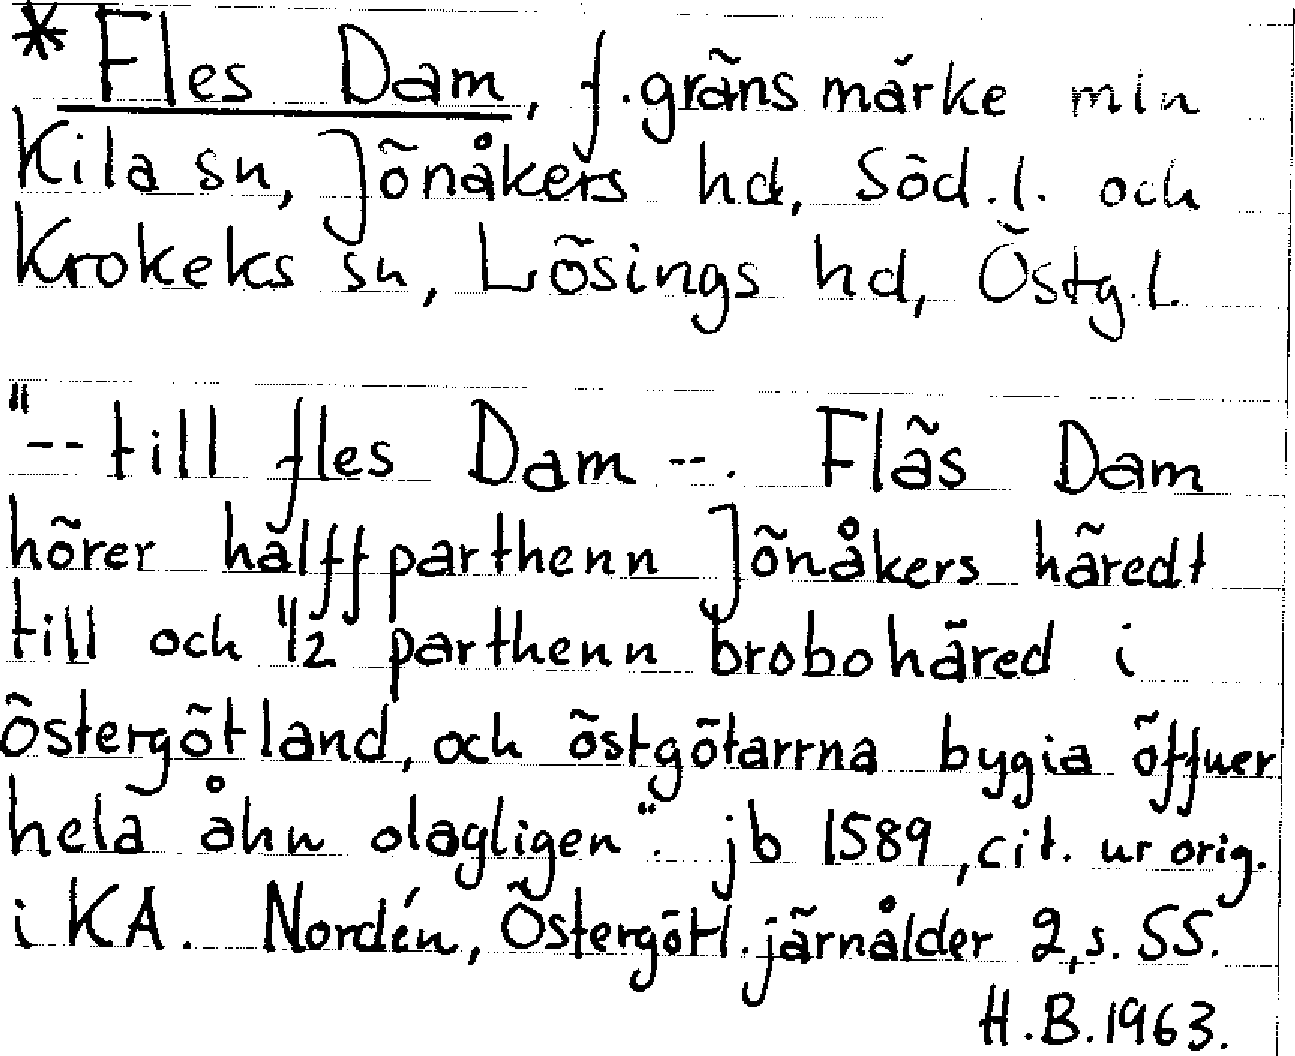 * Fles Dam, f. gränsmärke mln
Kila sn, Jönåkers hd, Söd.l. och
Krokeks sn, Lösings hd, Östg.l.
"-- till fles Dam --. Fläs Dam
hörer halffparthenn Jönåkers häredt
till och 1/2 parthenn brobohäred i
östergötland, och östgötarrna bygia öffuer
hela åhn olagligen". jb 1589, cit. ur orig.
i KA. Nordén, Östergötl. järnålder 2, s. 55.
H.B. 1963.